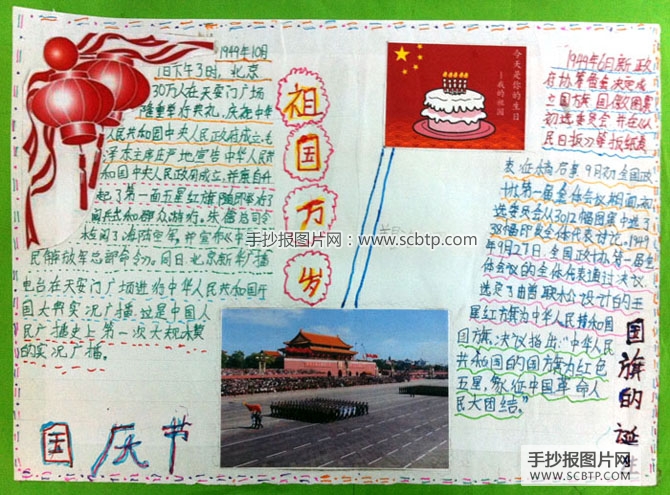 1949年10月
1日下午3时,北京
30万人在天安门广场
隆重举行典礼,庆祝中华
人民共和国中央人民政府成立.毛
泽东主席庄严地宣告中华人民共
和国中央人民政府成立,并亲自升
起了第一面五星红旗
朱德总司令
检阅了海陆空军,并宣布《中国人
民解放军总部命令》.同日北京新华广播
电台在天安门广场进行中华人民共和国开
国大典实况广播.这是中国人
民广播史上第一次大规模
的实况广播.
祖
国
万
岁
国庆节
今天是你的生日
--我的祖国
1949年6月新政
立国旗 国徽图案
初选委员会 并在《人
民日报》等报纸
9月初 全国政
协第一届全体会议
选委员会从3012幅图案中选了
38幅印发全体代表讨论。1949
年9月27日,全国政协第一届全
体会议的全体代表通过决议,
选定了由曾联松设计的五
星红旗为中华人民共和国
国旗,决议指出:"中华人民
共和国的国旗为红色
五星,象征中国革命人
民大团结。"
国旗的诞生
手抄报图片网:www.scbtp.com
手抄报图片网
WWW.SCBTP.COM